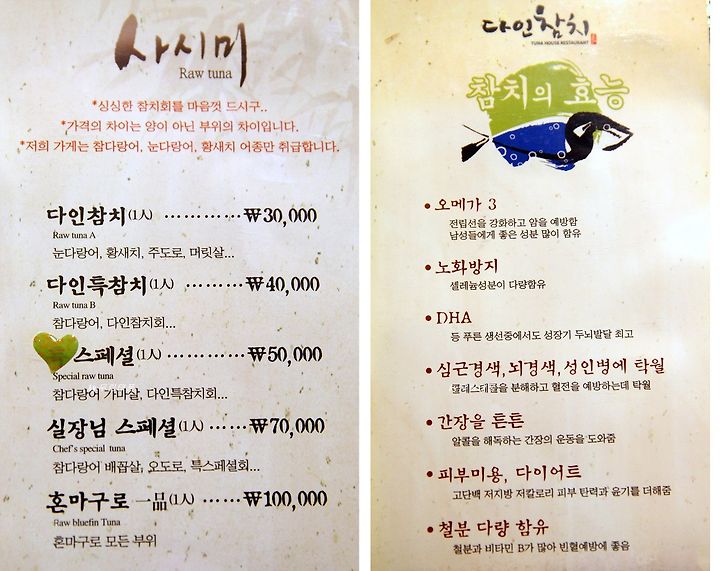 사시미
Raw tuna
*싱싱한 참치회를 마음껏 드시구..
*가격의 차이는 양이 아닌 부위의 차이입니다.
*저희 가게는 참다랑어, 눈다랑어, 황새치 어종만 취급합니다.
다인참치(1人) ············₩30,000
Raw tuna A
눈다랑어, 황새치, 주도로, 머릿살...
다인특참치(1人) ·········₩40,000
Raw tuna B
참다랑어, 다인참치회...
특스페셜(1人) ············₩50,000
Special raw tuna
참다랑어 가마살, 다인특참치회...
실장님 스페셜(1人) ······₩70,000
Chef's special tuna
참다랑어 배꼽살, 오도로, 특스페셜회...
혼마구로 一品(1人) ······₩100,000
Raw bluefin Tuna
혼마구로 모든 부위
다인참치
TUNA HOUSE RESTAURANT
참치의 효능
•오메가 3
전립선을 강화하고 암을 예방함
남성들에게 좋은 성분 많이 함유
•노화방지
셀레늄성분이 다량함유
•DHA
등 푸른 생선중에서도 성장기 두뇌발달 최고
•심근경색,뇌경색,성인병에 탁월
콜레스테롤을 분해하고 혈전을 예방하는데 탁월
•간장을 튼튼
알콜을 해독하는 간장의 운동을 도와줌
•피부미용, 다이어트
고단백 저지방 저칼로리 피부 탄력과 윤기를 더해줌
•철분 다량 함유
철분과 비타민 B가 많아 빈혈예방에 좋음